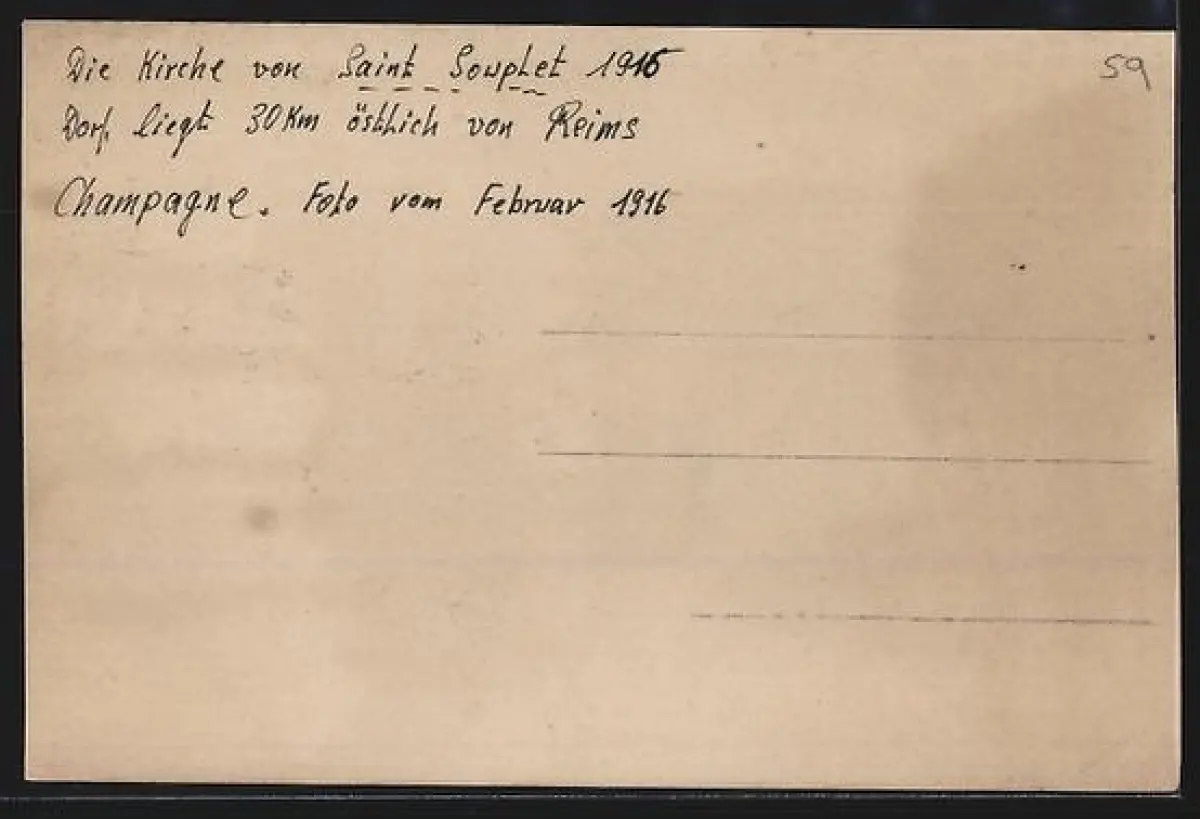 Die Kirche von Saint Souplet 1916
59
Dorf liegt 30 Km östlich von Reims
Champagne. Foto vom Februar 1916